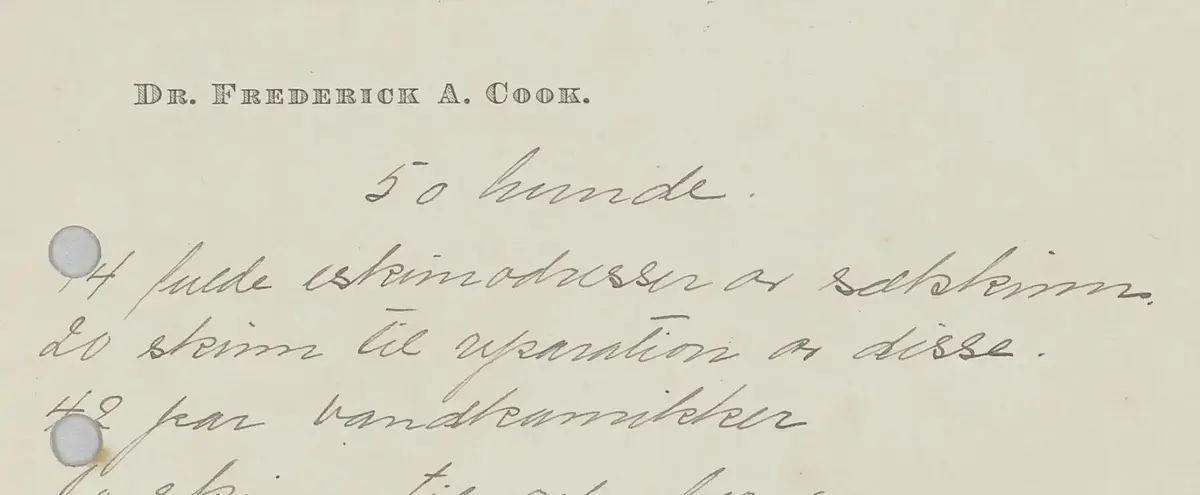 DR. FREDERICK A. COOK.
50 hunde.
14 fulde eskimodresser av sælskinn.
20 skinn til reparation av disse.
42 par vandkamikker
skinn til